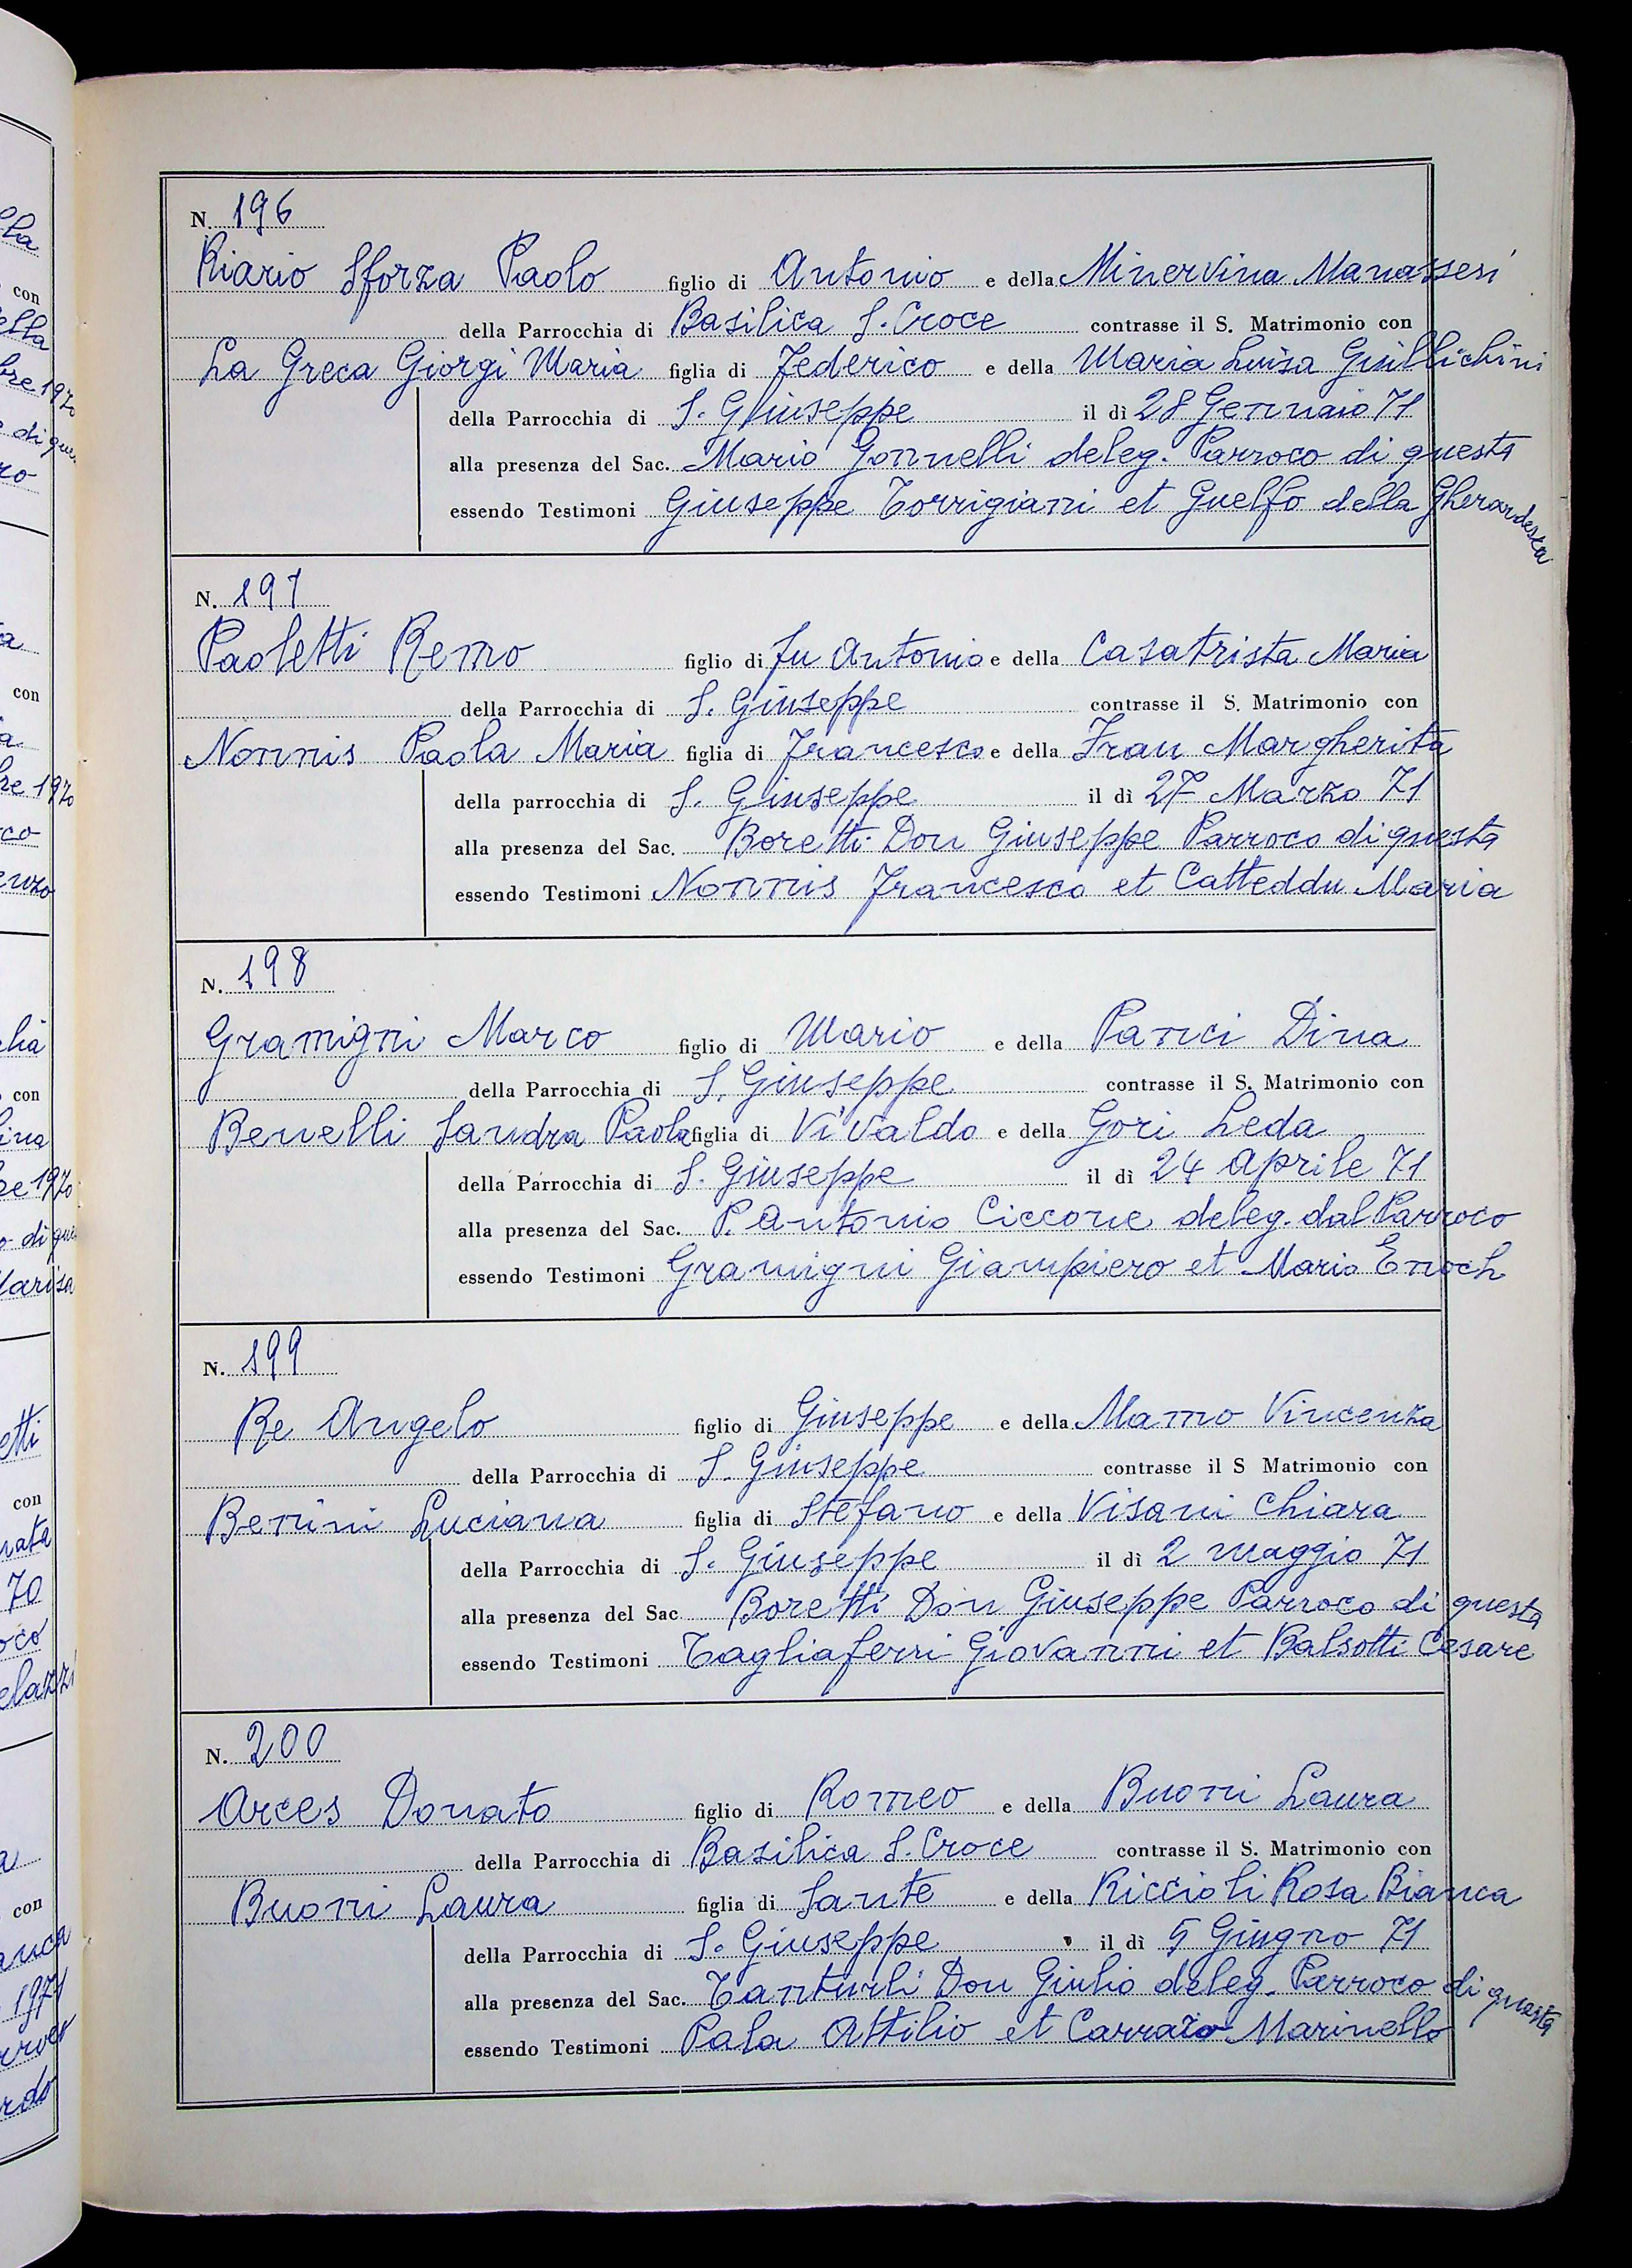 N. 196
Riario Sforza Paolo figlio di Antonio e della Minervina Manassesi
della Parrocchia di Basilica S. Croce contrasse il S. Matrimonio con
La Greca Giorgi Maria figlia di Federico e della Maria Luisa Guillichini
della Parrocchia di S. Giuseppe il dì 28 Gennaio 71
alla presenza del Sac. Mario Gonnelli deleg. Parroco di questa
essendo Testimoni Giuseppe Torrigiani et Guelfo della Gherardesca
N. 197
Paoletti Remo figlio di fu Antonio e della Casatrista Maria
della Parrocchia di S. Giuseppe contrasse il S. Matrimonio con
Nonnis Paola Maria figlia di Francesco e della Frau Margherita
della parrocchia di S. Giuseppe il dì 27 Marzo 71
alla presenza del Sac. Boretti Don Giuseppe Parroco di questa
essendo Testimoni Nonnis Francesco et Catteddu Maria
N. 198
Gramigni Marco figlio di Mario e della Panci Dina
della Parrocchia di S. Giuseppe contrasse il S. Matrimonio con
Benelli Sandra Paola figlia di Vivaldo e della Gori Leda
della Parrocchia di S. Giuseppe il dì 24 Aprile 71
alla presenza del Sac. P. Antonio Ciccone deleg. dal Parroco
essendo Testimoni Gramigni Giampiero et Mario Enoch
N. 199
Re Angelo figlio di Giuseppe e della Mamo Vincenza
della Parrocchia di S. Giuseppe contrasse il S Matrimonio con
Benini Luciana figlia di Stefano e della Visani Chiara
della Parrocchia di S. Giuseppe il dì 2 Maggio 71
alla presenza del Sac Boretti Don Giuseppe Parroco di questa
essendo Testimoni Tagliaferri Giovanni et Balsotti Cesare
N. 200
Arces Donato figlio di Romeo e della Buoni Laura
della Parrocchia di Basilica S. Croce contrasse il S. Matrimonio con
Buoni Laura figlia di Sante e della Riccioli Rosa Bianca
della Parrocchia di S. Giuseppe il dì 5 Giugno 71
alla presenza del Sac. Tanturli Don Giulio deleg. Parroco di questa
essendo Testimoni Pala Attilio et Carraro Marinello